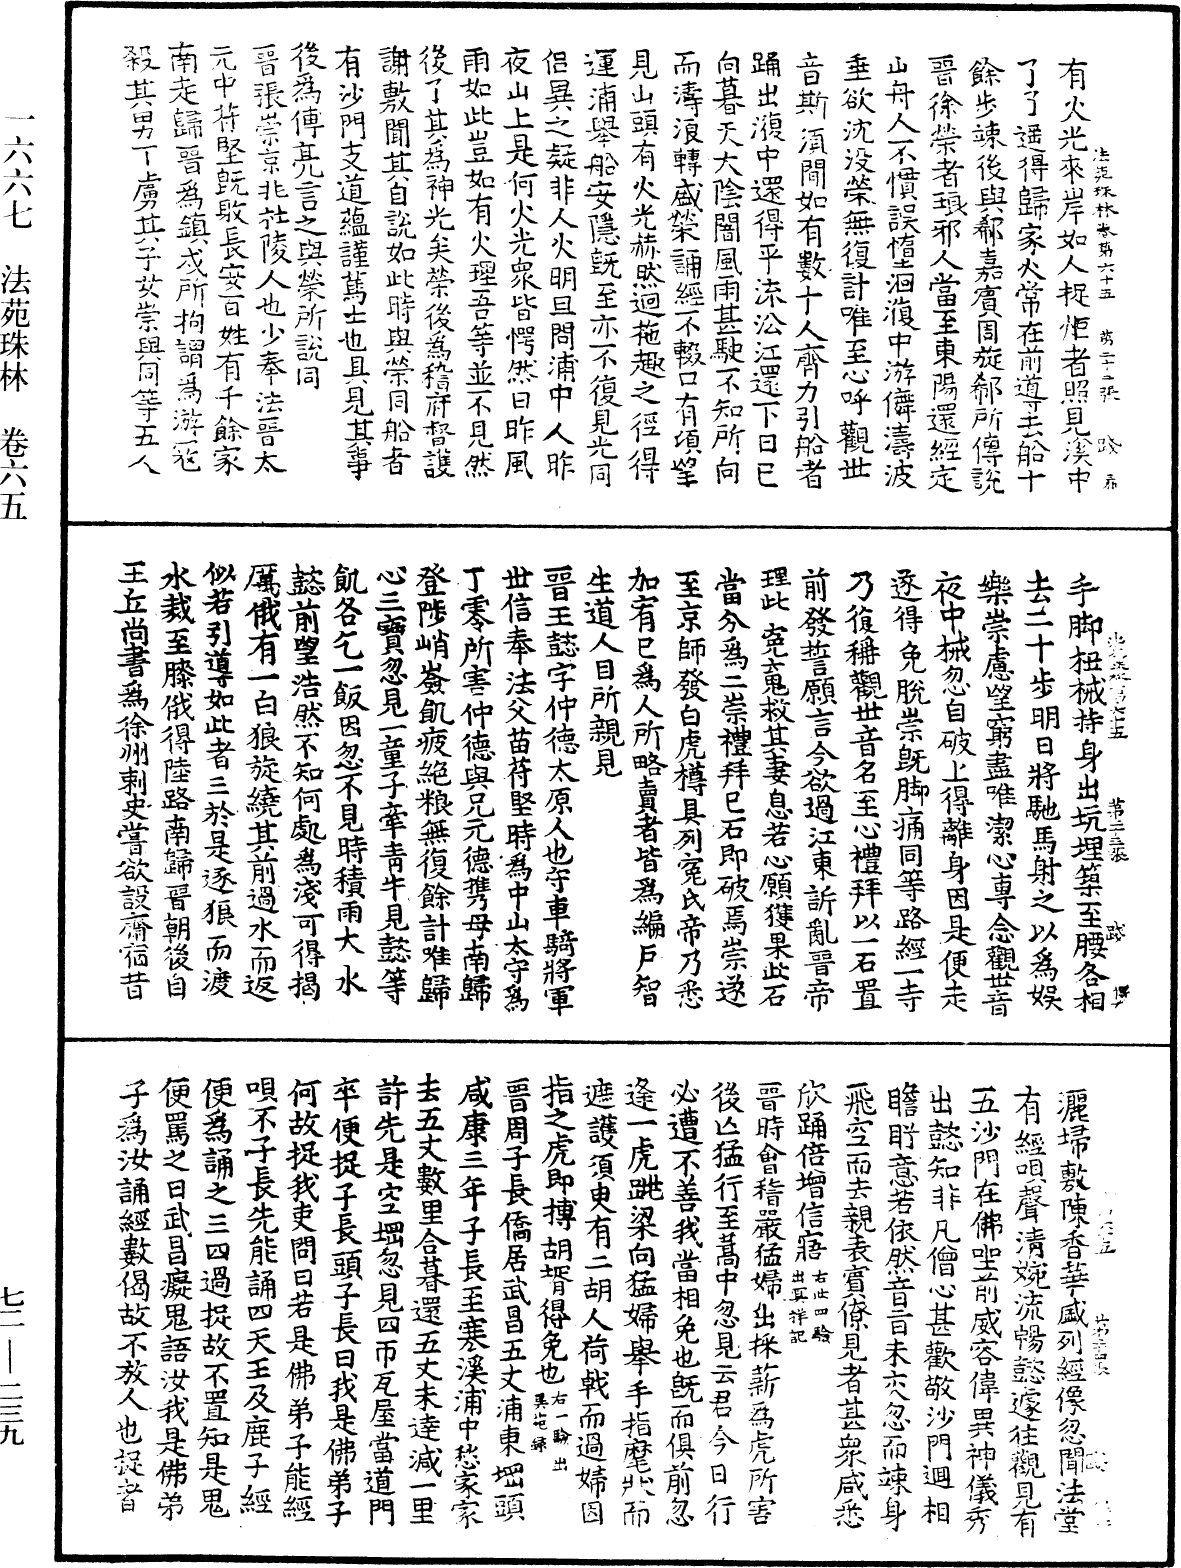 有火光來岸如人捉炬者照見溪中
了了遥得歸家火常在前導去船十
餘步竦後與郗嘉賓周旋郗所傳說
晉徐榮者琅邪人當至東陽還經定
山舟人不慣誤墮洄澓中游儛濤波
垂欲沈没榮無復計唯至心呼觀世
音斯須間如有數十人齊力引船者
踊出澓中還得平流沿江還下日已
向暮天大陰闇風雨甚駛不知所向
而濤浪轉盛榮誦經不輟口有頃望
見山頭有火光赫然迴拖趣之徑得
還浦舉船安隱旣至亦不復見光同
侣異之疑非人火明旦問浦中人昨
夜山上是何火光衆皆愕然曰昨風
雨如此豈如有火理吾等並不見然
後了其為神光矣榮後為稽府督護
謝敷聞其自說如此時與榮同船者
有沙門支道蘊謹篤士也具見其事
後爲傅亮言之與榮所說同
晉張崇京兆杜陵人也少奉法晉太
元中苻堅旣敗長安百姓有千餘家
南走歸晉爲鎮戍所拘謂爲游寇
殺其男丁虜其子女崇與同等五人
手脚杻械持身出坑埋築至腰各相
去二十步明日將馳馬射之以為娱
樂崇慮望窮盡唯潔心專念觀世音
夜中械忽自破上得離身因是便走
逐得免脫崇旣脚痛同等路經一寺
乃復稱觀世音名至心禮拜以一石置
前發誓願言今欲過江東訴亂晉帝
理此寃䰟救其妻息若心願獲果此石
當分為二崇禮拜已石即破焉崇遂
至京師發白虎樽具列寃氏帝乃悉
加宥已爲人所略賣者皆爲編戶智
生道人目所親見
晉王懿字仲德太原人也守車騎將軍
世信奉法父苗苻堅時爲中山太守為
丁零所害仲德與兄元德携母南歸
登陟峭嶮飢疲絶粮無復餘計唯歸
心三寶忽見一童子牽靑牛見懿等
飢各乞一飯因忽不見時積雨大水
懿前望浩然不知何處為淺可得揭
厲俄有一白狼旋繞其前過水而返
似若引導如此者三於是逐狼而渡
水裁至膝俄得陸路南歸晉朝後自
五丘尚書爲徐州刺史嘗欲設齋宿昔
灑埽敷陳香華盛列經像忽聞法堂
有經唄聲清婉流暢懿遽往觀見有
五沙門在佛坐前威容偉異神儀秀
出懿知非凡僧心甚歡敬沙門迴相
瞻盱意若依然音旨未交忽而竦身
飛空而去親表賓僚見者甚衆咸悉
欣踊倍增信寤 右此四驗出冥祥記
晉時會稽嚴猛婦出採薪為虎所害
後亡猛行至蒿中忽見云君今日行
必遭不善我當相免也旣而俱前忽
逢一虎跳梁向猛婦舉手指麾狀而
遮護須臾有二胡人荷戟而過婦因
指之虎即搏胡壻得免也 右一驗出異苑録
晉周子長僑居武昌五丈浦東堽頭
咸康三年子長至寒溪浦中愁家家
去五丈數里合暮還五丈未達減一里
許先是空堽忽見四帀瓦屋當道門
卒便捉子長頭子長曰我是佛弟子
何故捉我吏問曰若是佛弟子能經
唄不子長先能誦四天王及鹿子經
便為誦之三四過捉故不置知是鬼
便罵之曰武昌癡鬼語汝我是佛弟
子爲汝誦經數偈故不放人也捉者
一六六七 法苑珠林 卷六五
七二—二三九
法苑珠林卷第六十五 第二十二張